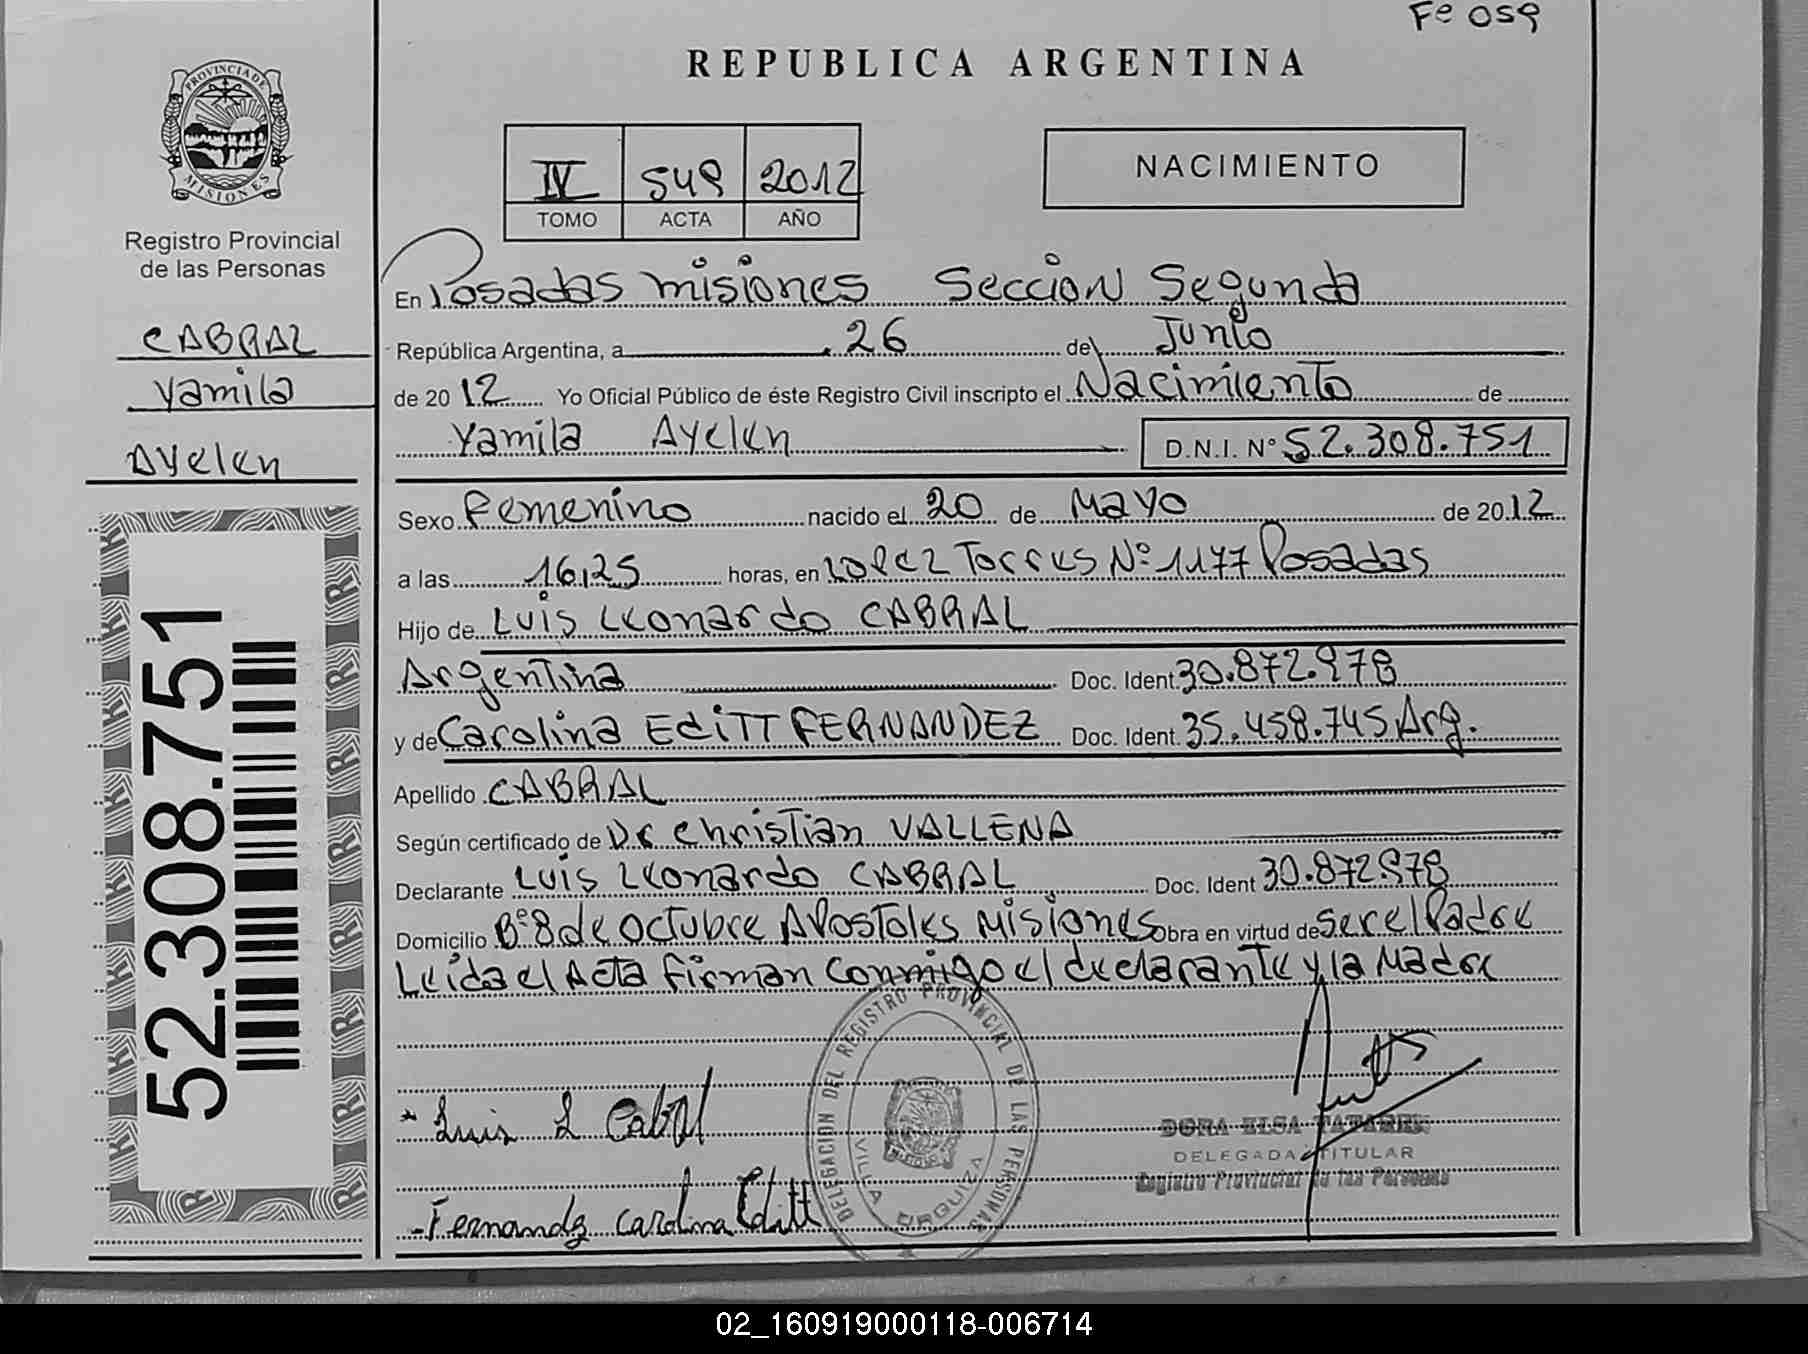 Fe 059
REPUBLICA ARGENTINA
PROVINCIA DE MISIONES
Registro Provincial
de las Personas
CABRAL
Yamila
Ayelen
52.308.751
IV 549 2012
TOMO ACTA AÑO
NACIMIENTO
En Posadas Misiones Sección Segunda
República Argentina, a 26 de Junio
de 20 12 Yo Oficial Público de éste Registro Civil inscripto el Nacimiento de
Yamila Ayelen D.N.I. N° 52.308.751
Sexo Femenino nacido el 20 de Mayo de 20 12
a las 16,25 horas, en Lopez Torres N° 1177 Posadas
Hijo de Luis Leonardo CABRAL
Argentina Doc. Ident. 30.872.978
y de Carolina Editt FERNANDEZ Doc. Ident. 35.458.745 Arg.
Apellido CABRAL
Según certificado de Dr Christian VALLENA
Declarante Luis Leonardo CABRAL Doc. Ident 30.872.978
Domicilio B° 8 de Octubre Apostoles Misiones Obra en virtud de ser el Padre
Leida el Acta firman conmigo el declarante y la Madre
DELEGACION DEL REGISTRO PROVINCIAL DE LAS PERSONAS
VILLA URQUIZA
Luis L Cabral
Fernandz Carolina Editt
DORA ELSA
DELEGADA TITULAR
Registro Provincial de las Personas
02_160919000118-006714